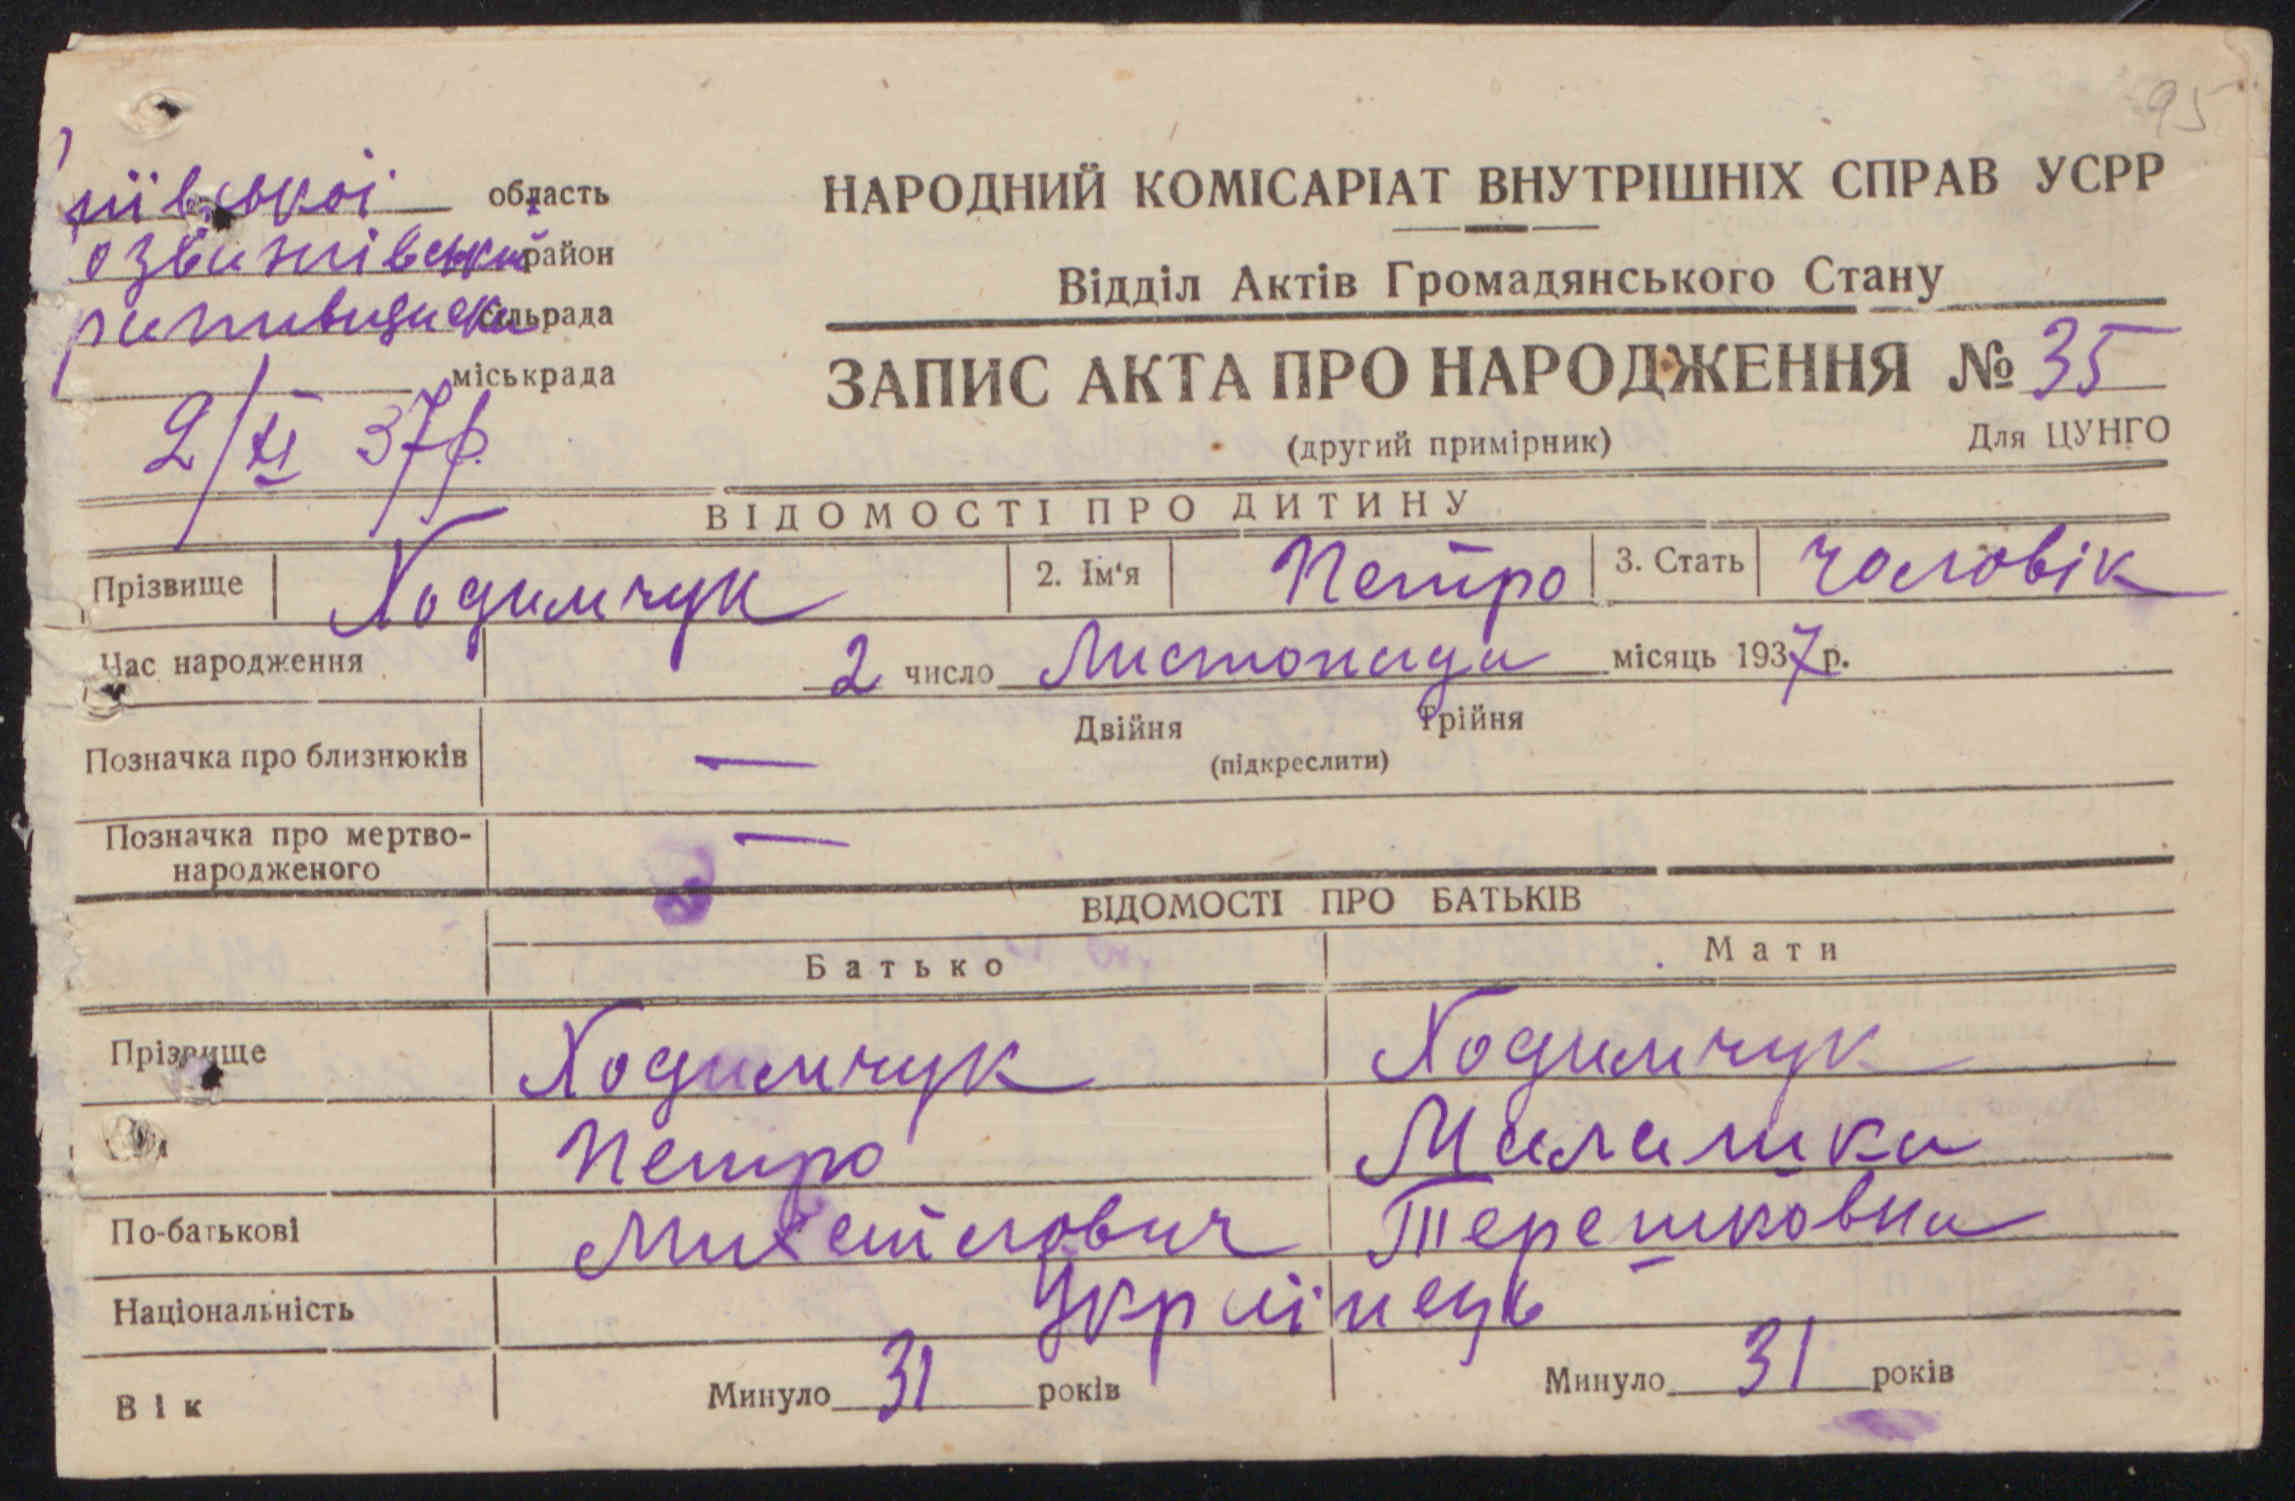 95
ївської область
озважівський район
сільрада
міськрада
2/XI 37 р.
НАРОДНИЙ КОМІСАРІАТ ВНУТРІШНІХ СПРАВ УСРР
Відділ Актів Громадянського Стану
ЗАПИС АКТА ПРО НАРОДЖЕННЯ № 35
(другий примірник) Для ЦУНГО
ВІДОМОСТІ ПРО ДИТИНУ
Прізвище Ходимчук 2. Ім'я Петро 3. Стать чоловік
Час народження 2 число Листопада місяць 1937 р.
Двійня Трійня
Позначка про близнюків — (підкреслити)
Позначка про мертво-
народженого —
ВІДОМОСТІ ПРО БАТЬКІВ
Батько Мати
Прізвище Ходимчук Ходимчук
Петро Малашка
По-батькові Терешковна
Національність Українець
Вік Минуло 31 років Минуло 31 років